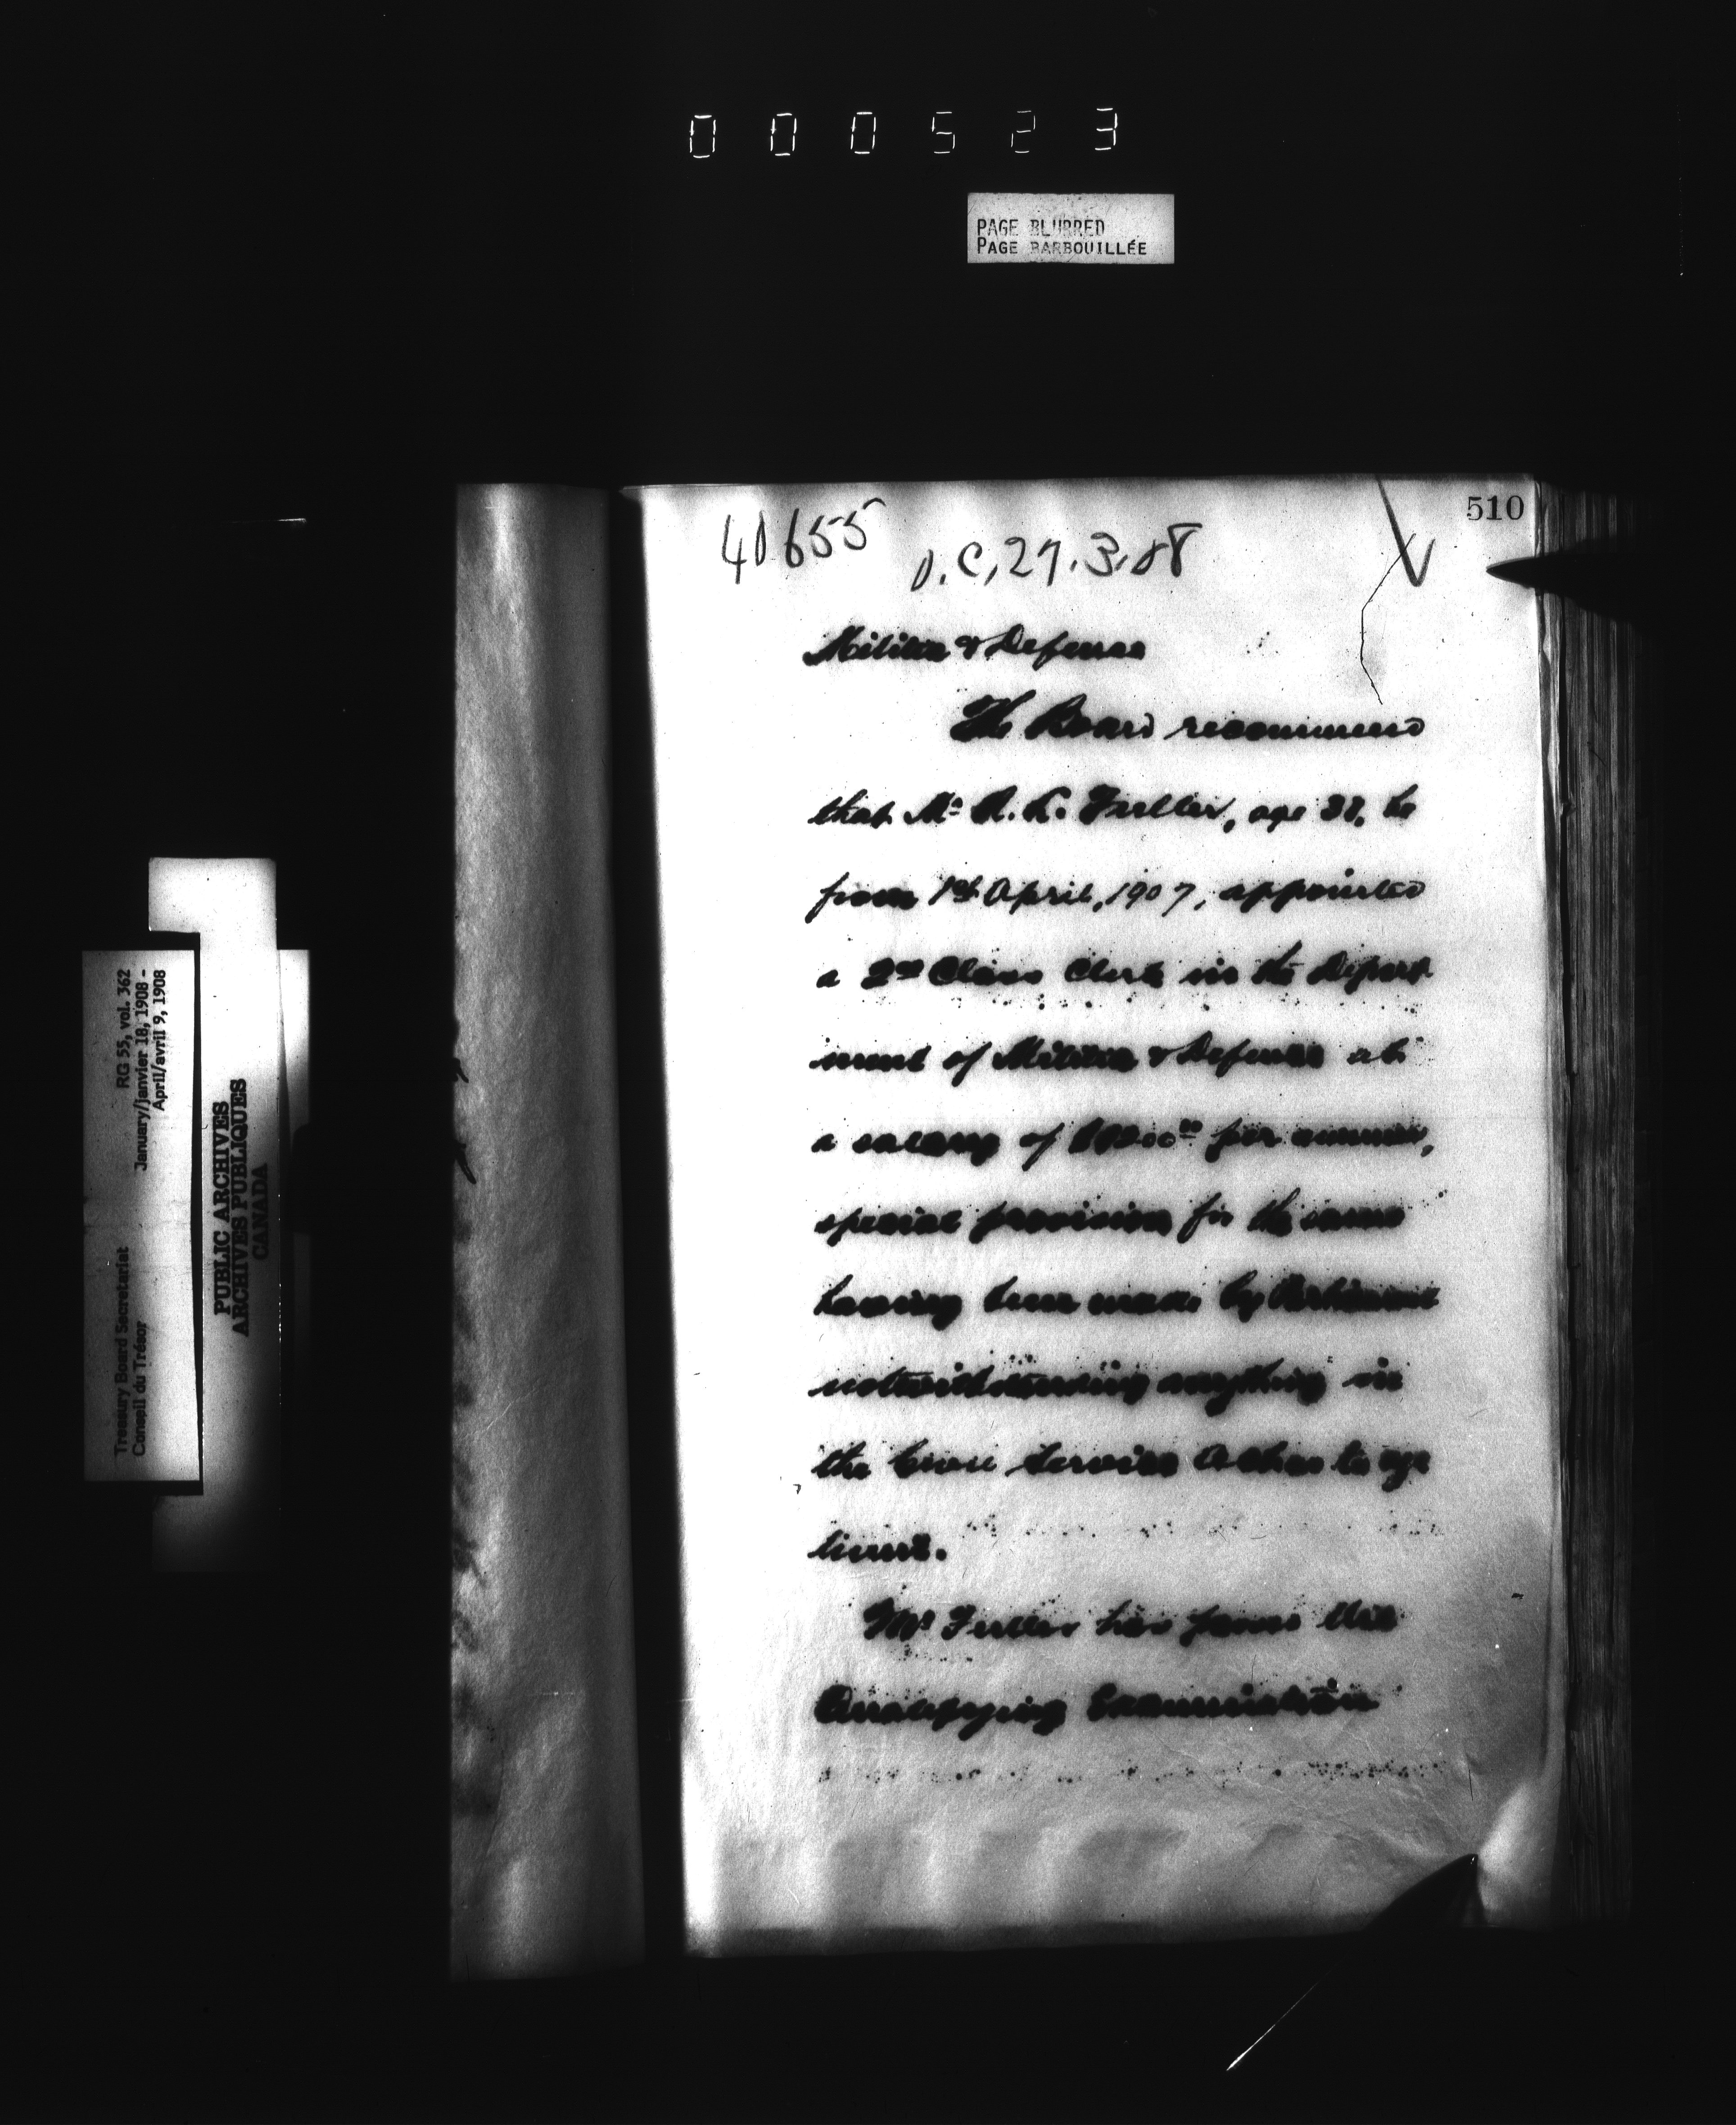 000523
PAGE BLURRED
PAGE BARBOUILLÉE
510
40655
O.C. 27.3.08
Militia & Defence
The Board recommend
that Mr Fuller, age 37, be
from 1st April, 1907, appointed
a 2nd Class Clerk in the Depart
ment of Militia & Defence at
a salary of per annum,
special provision for the same
having been made by Parliament
notwithstanding anything in
the Civil Service Act as to age
limit.
Mr Fuller has passed the
Qualifying Examination
Treasury Board Secretariat RG 55, vol. 362
Conseil du Trésor January/janvier 18, 1908 -
April/avril 9, 1908
PUBLIC ARCHIVES
ARCHIVES PUBLIQUES
CANADA